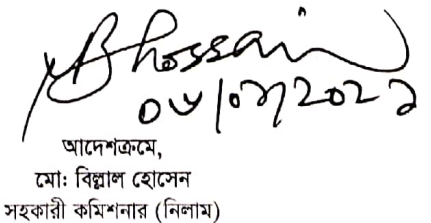 Bhossain
আদেশক্রমে,
মোঃ বিল্লাল হোসেন
সহকারী কমিশনার (নিলাম)